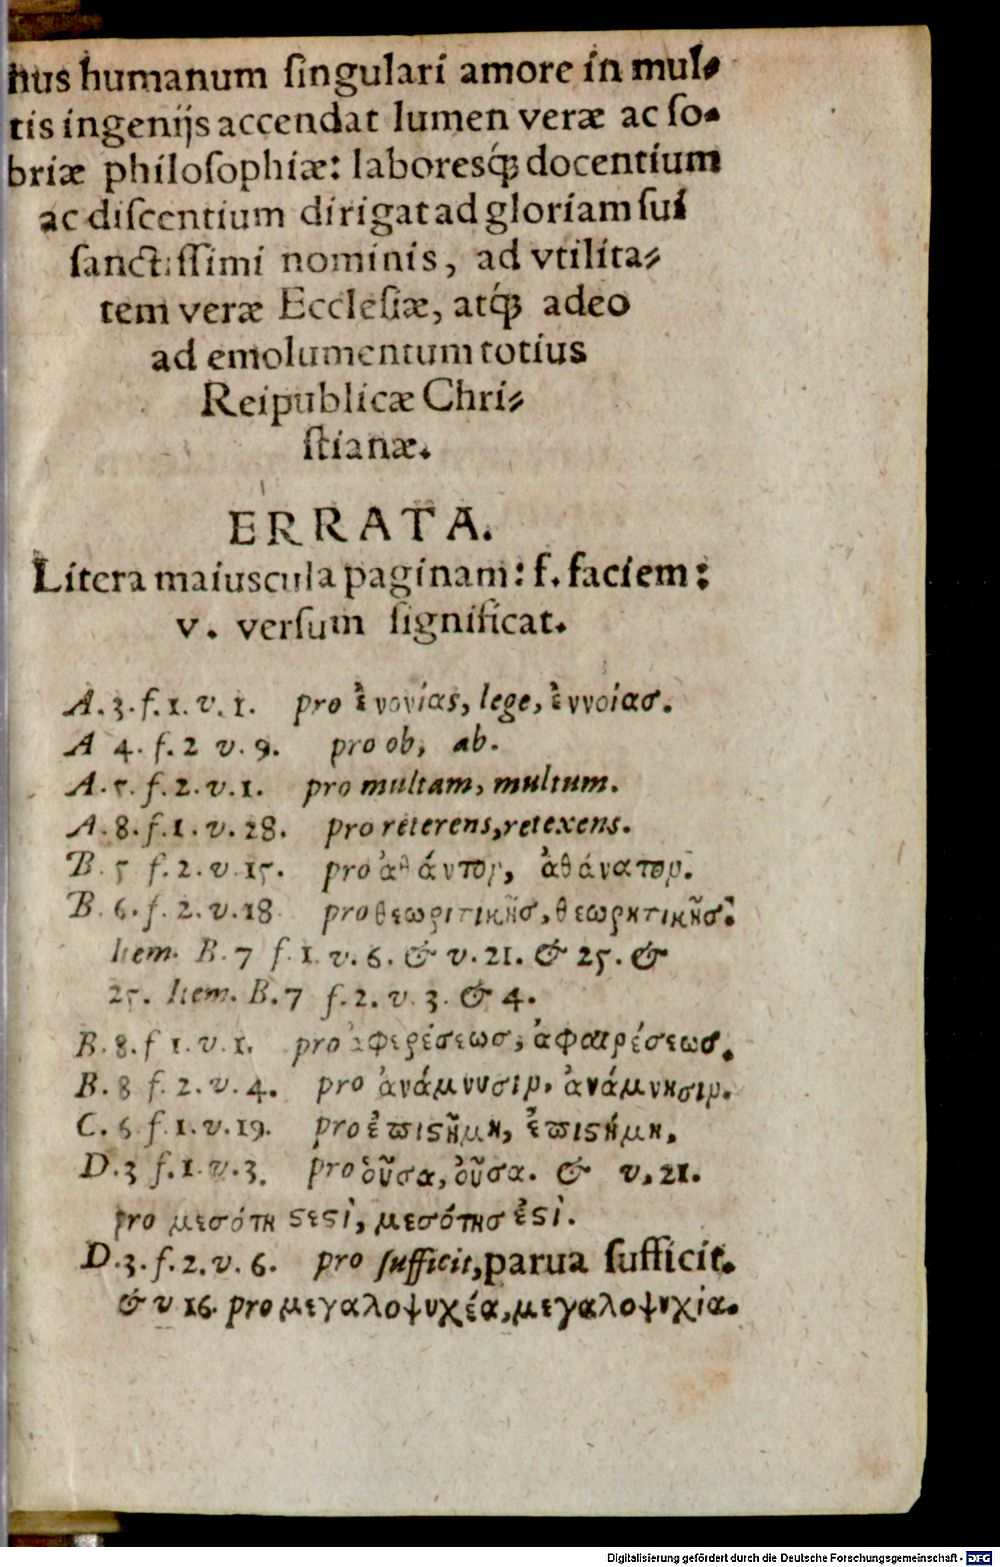 nus humanum ſingulari amore in mul⸗
tis ingenijs accendat lumen veræ ac ſo⸗
briæ philoſophiæ: laboresq́ꝫ docentium
ac diſcentium dirigat ad gloriam ſui
ſanctiſſimi nominis, ad vtilita⸗
tem veræ Eccleſiæ, atq́ꝫ adeo
ad emolumentum totius
Reipublicæ Chri⸗
ſtianæ.
ERRATA.
Litera maiuscula paginam: f. faciem:
v. verſum ſignificat.
A.3.f.1.v.1. pro ἐνονίας, lege, ἐννοίας.
A 4. f.2 v.9. pro ob, ab.
A.5.f.2.v.1. pro multam, multum.
A.8.f.1.v.28. pro reterens, retexens.
B.5 f.2.v.15. pro ἀθάντον, ἀθάνατον.
B.6.f.2.v.18 pro θεωριτικῆς, θεωρητικῆς.
Item. B.7 f.1.v.6. & v.21. & 25. &
25. Item. B.7 f.2.v.3. & 4.
B.8.f 1.v.1. pro ἀφερέσεως, ἀφαιρέσεως.
B.8 f.2.v.4. pro ἀνάμνυσιν, ἀνάμνησιν.
C.6 f.1.v.19. pro ἐπιϛῆμη, ἐπιϛήμη.
D.3 f.1.v.3. pro οὗσα, οὖσα. & v.21.
pro μεσότη ϛεϛὶ, μεσότης ἐϛὶ.
D.3.f.2.v.6. pro ſufficit, parua ſufficit.
& v 16. pro μεγαλοψυχέα, μεγαλοψυχία.
Digitalisierung gefördert durch die Deutsche Forschungsgemeinschaft - DFG